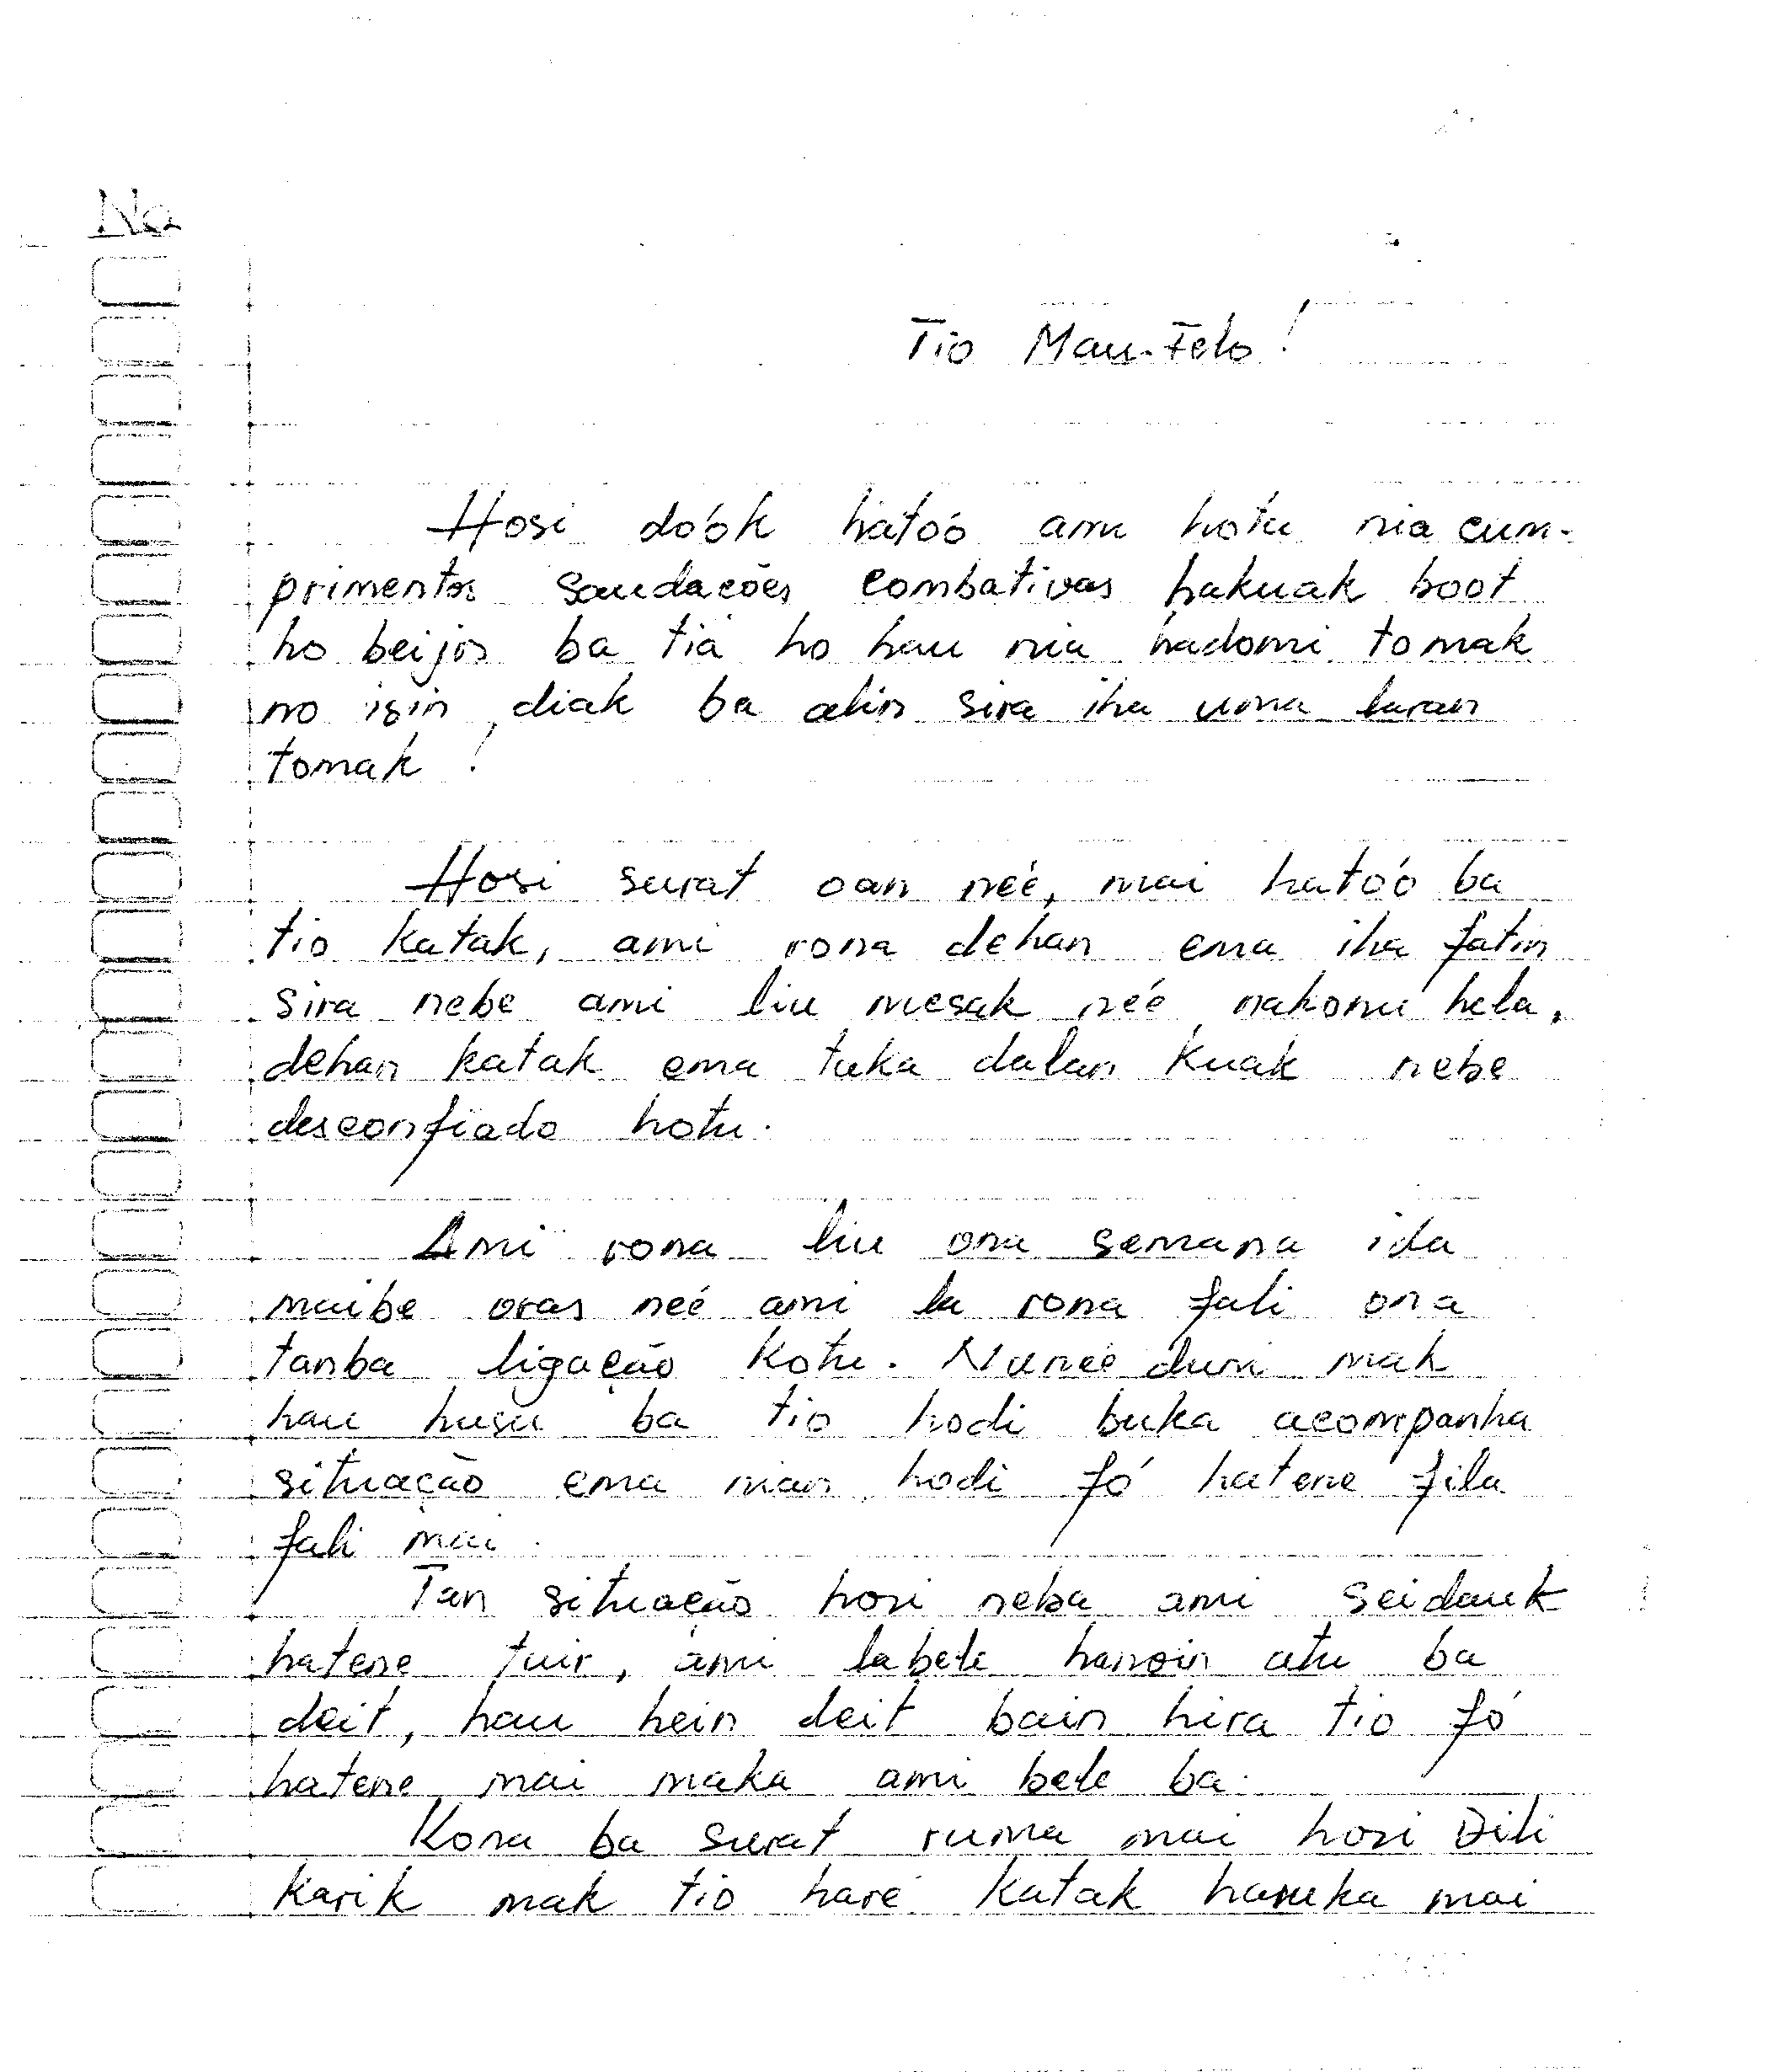 No
Tio Mau-Felo!
Hosi dóok ható́o ami hotu nia cum-
primentos saudações combativas hakuak boot
ho beijos ba tia ho hau nia hadomi tomak
no isin diak ba alin sira iha uma laran
tomak!
Hosi surat oan neé, mai hatóo ba
tio katak, ami rona dehan ema iha fatin
sira nebe ami liu mesak neé nakonu hela,
dehan katak ema tuka dalan kuak nebe
desconfiado hotu.
Ami rona liu ona semana ida
maibe oras neé ami la rona fali ona
tanba ligação kotu. Nuneé duni mak
hau husu ba tio hodi buka acompanha
situação ema nian hodi fó hatene fila
fali mai.
Tan situação hosi neba ami seidauk
hatene tuir, ami labele hanoin atu ba
deit, hau hein deit bain hira tio fó
hatene mai maka ami bele ba.
Kona ba surat ruma mai hosi Dili
karik mak tio haré katak haruka mai